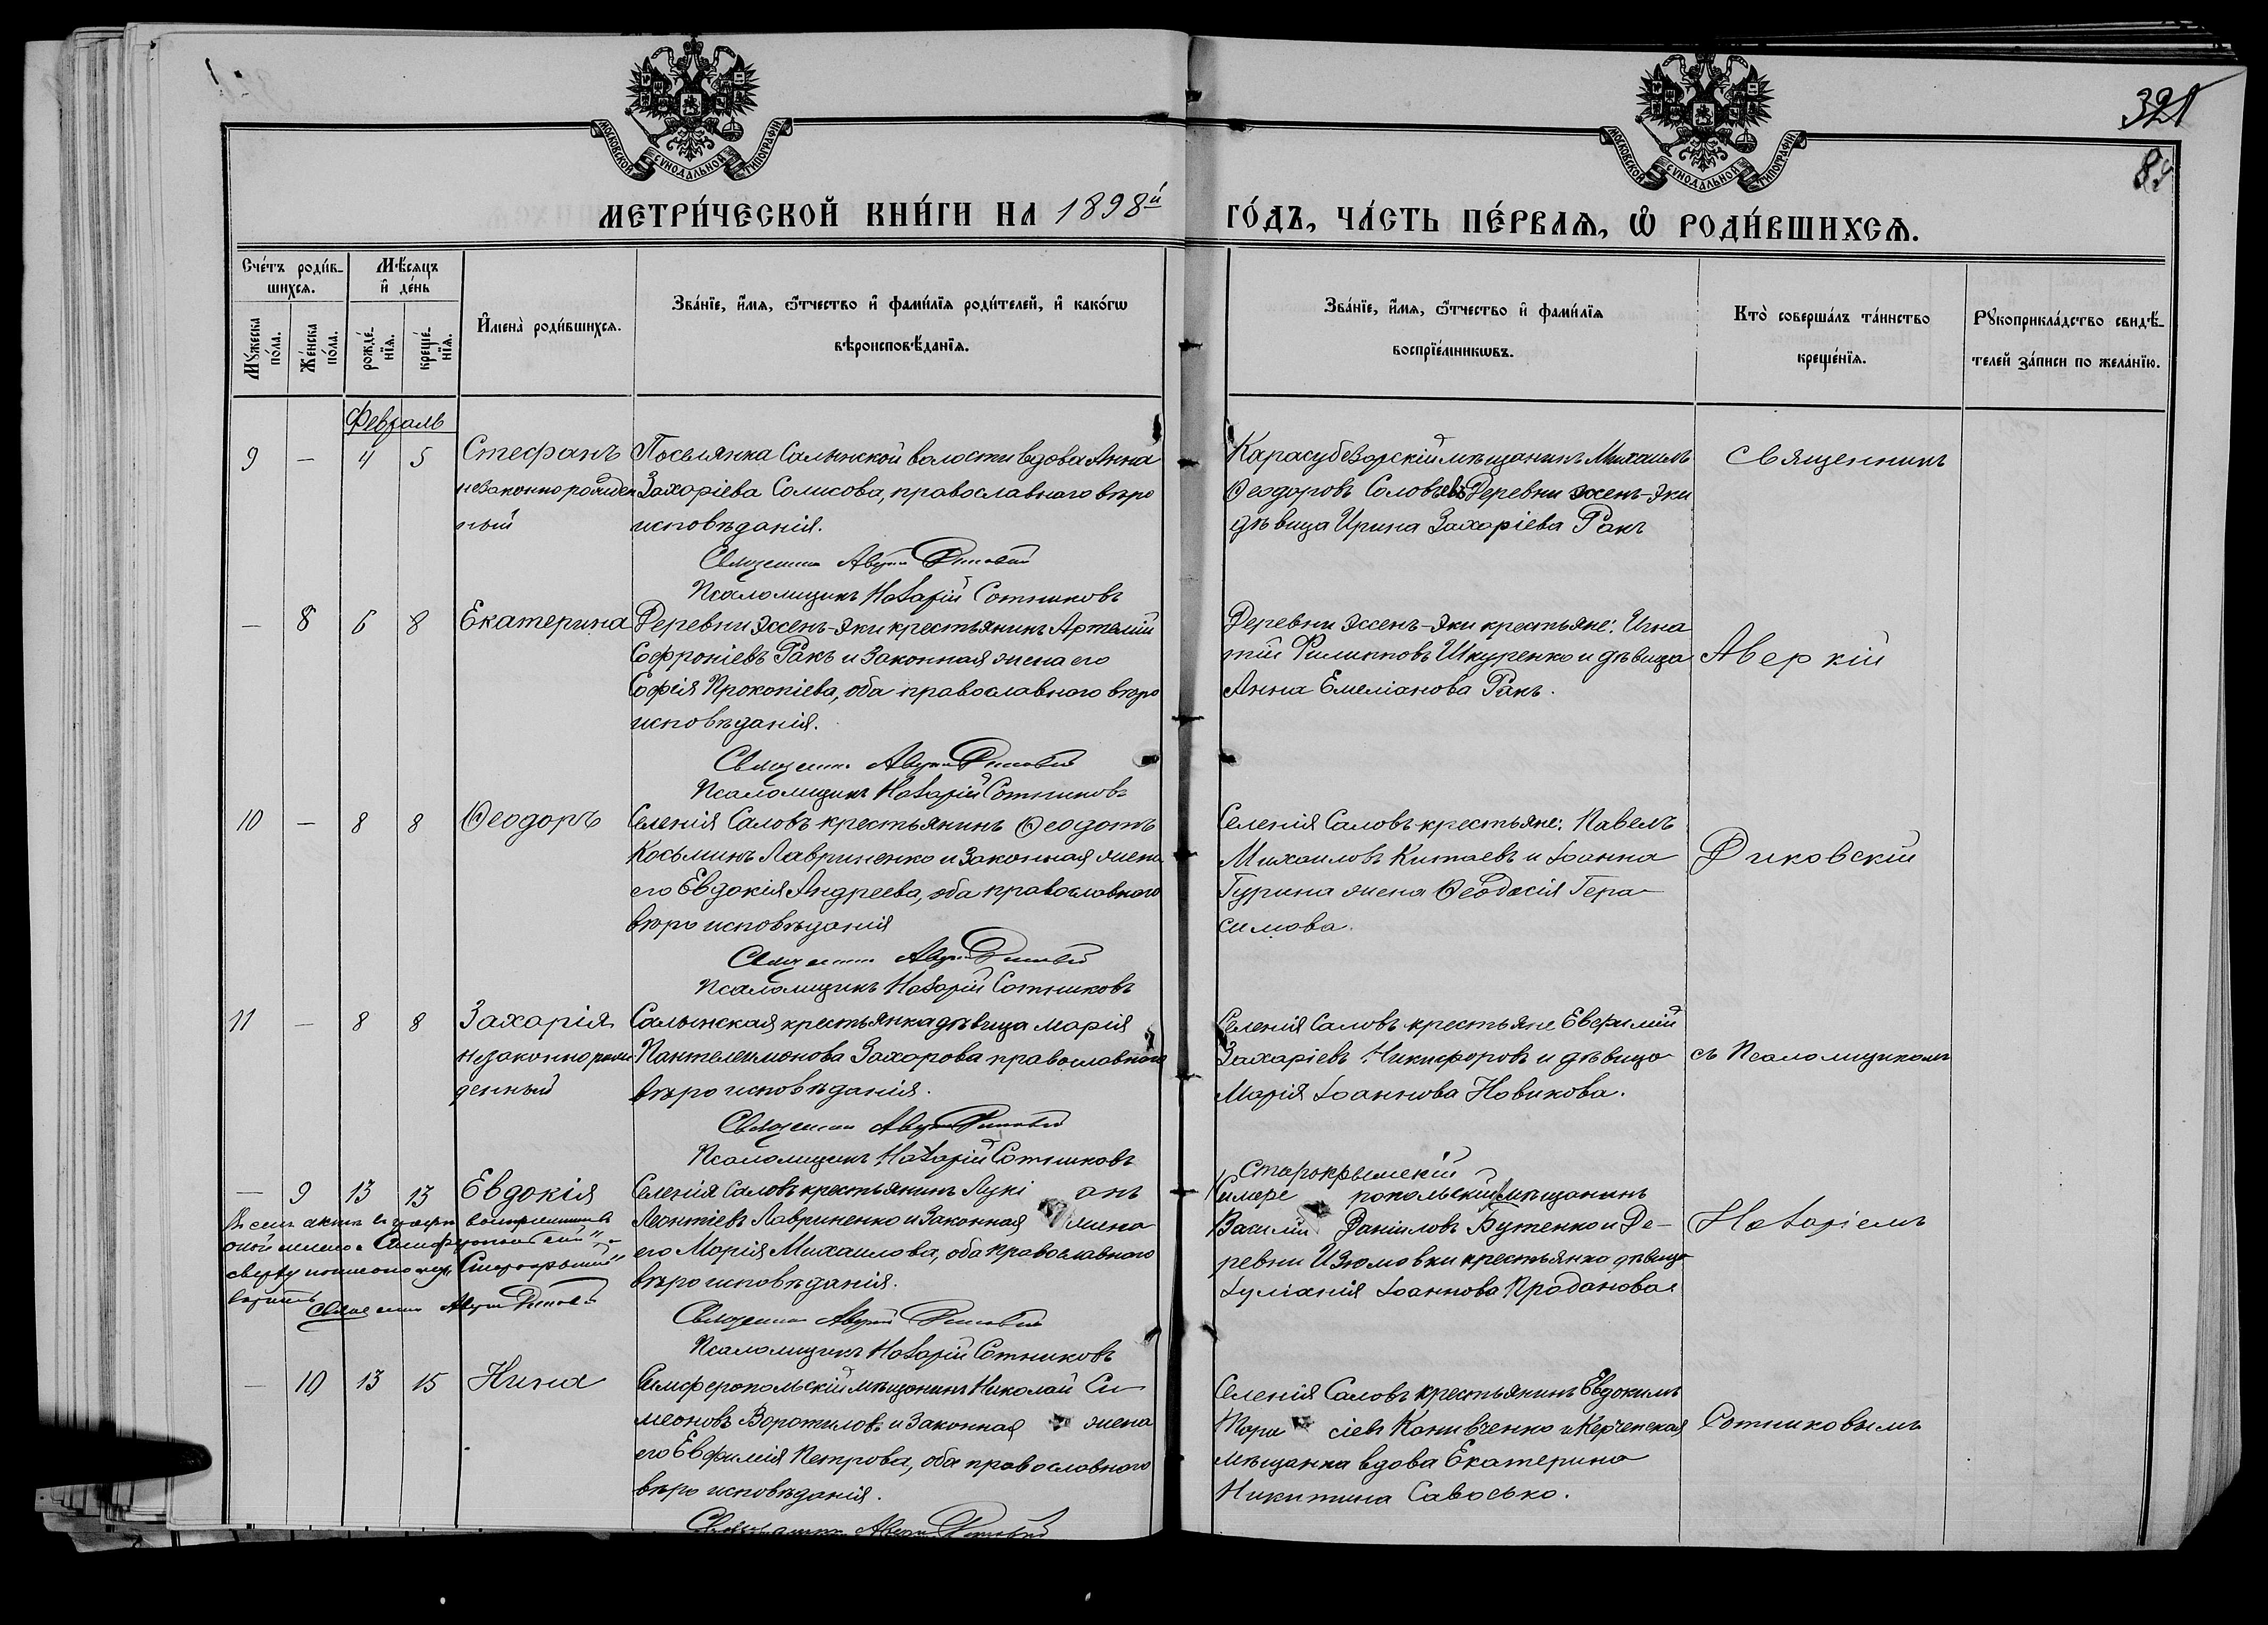 321
МОСКОВСКОЙ СѴНОДАЛЬНОЙ ТИПОГРАФІИ
МОСКОВСКОЙ СѴНОДАЛЬНОЙ ТИПОГРАФІИ
МЕТРИ́ЧЕСКОЙ КНИ́ГИ НА 1898й ГО́ДЪ, ЧА́СТЬ ПЕ́РВАѦ, Ѡ҆ РОДИ́ВШИХСѦ.
Сче́тъ роди́в-
шихсѧ.
Мꙋжеска по́ла.
Же́нска по́ла.
Мѣ́сѧцъ
и҆ де́нь
рожде́-
нїѧ.
креще́-
нїѧ.
И҆мена̀ роди́вшихсѧ.
Зва́нїе, и҆́мѧ, ѻ҆́тчество и҆ фами́лїѧ роди́телей, и҆ како́гѡ
вѣроисповѣ́данїѧ.
Зва́нїе, и҆́мѧ, ѻ҆́тчество и҆ фами́лїѧ
воспрїе́мникѡвъ.
Кто̀ соверша́лъ та́инство
креще́нїѧ.
Рꙋкоприкла́дство свидѣ́-
телей за́писи по жела́нїю.
Февраль
9 — 4 5
Стефанъ
незаконнорожден
ный
Поселянка Салынской волости вдова Анна
Захаріева Солисова, православнаго вѣро
исповѣданія.
Священникъ Аверкій Диковскій
Псаломщикъ Назарій Сотниковъ
Карасубазарскій мѣщанинъ Михаилъ
Ѳеодоровъ Соловьевъ Деревни Эссенъ-Эки
дѣвица Ирина Захаріева Ракъ
Священникъ
— 8 6 8
Екатерина
Деревни Эссенъ-Эки крестьянинъ Артемій
Софроніевъ Ракъ и законная жена его
Софія Прокопіева, оба православнаго вѣро
исповѣданія.
Священникъ Аверкій Диковскій
Псаломщикъ Назарій Сотниковъ
Деревни Эссенъ-Эки крестьяне: Игна
тій Филипповъ Шкуренко и дѣвица
Анна Емеліанова Ракъ.
Аверкій
10 — 8 8
Ѳеодоръ
Селенія Саловъ крестьянинъ Ѳеодотъ
Косьминъ Лавриненко и законная жена
его Евдокія Андреева, оба православнаго
вѣро исповѣданія
Священникъ Аверкій Диковскій
Псаломщикъ Назарій Сотниковъ
Селенія Саловъ крестьяне: Павелъ
Михаиловъ Китаевъ и Іоанна
Гурина жена Ѳеодосія Гера-
симова.
Диковскій
11 — 8 8
Захарія
незаконнорож
денный
Салынская крестьянка дѣвица Марія
Пантелеимонова Захарова православнаго
вѣро исповѣданія.
Священникъ Аверкій Диковскій
Псаломщикъ Назарій Сотниковъ
Селенія Саловъ крестьяне Евфимій
Захаріевъ Никифоровъ и дѣвица
Марія Іоаннова Новикова.
съ Псаломщикомъ
— 9 13 13
Евдокія
Селенія Саловъ крестьянинъ Лукі анъ
Леонтіевъ Лавриненко и законная жена
его Марія Михаилова, оба православнаго
вѣро исповѣданія.
Священникъ Аверкій Диковскій
Псаломщикъ Назарій Сотниковъ
Старокрымскій
Симферо польскій мѣщанинъ
Василій Даніиловъ Бутенко и Де-
ревни Изюмовки крестьянка дѣвица
Іуліанія Іоаннова Проданова
Назаріемъ
Въ семъ актѣ въ графѣ
сверху
Священникъ Аверкій Диковскій
— 10 13 15
Нина
Симферопольскій мѣщанинъ Николай Си-
меоновъ Воротиловъ и законная жена
его Евфимія Петрова, оба православнаго
вѣро исповѣданія.
Священникъ Аверкій Диковскій
Селенія Саловъ крестьянинъ Евдокимъ
Тара сіевъ Конивченко и Керченская
мѣщанка вдова Екатерина
Никитина Савосько.
Сотниковымъ